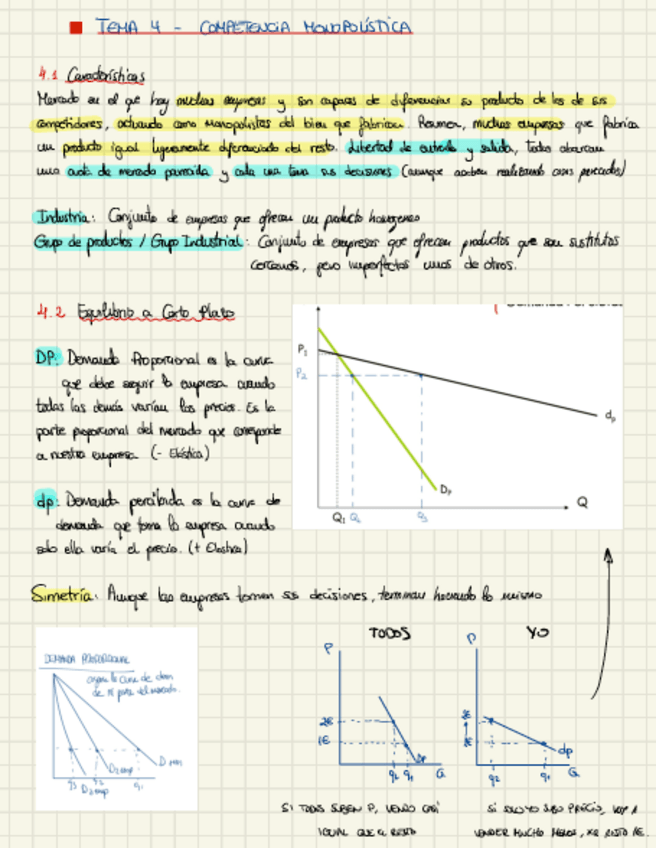 TEMA 4 - COMPETENCIA MONOPOLÍSTICA
4.1 Características
Mercado en el que hay muchas empresas y son capaces de diferenciar su producto de los de sus
competidores, actuando como monopolistas del bien que fabrican. Resumen, muchas empresas que fabrica
un producto igual ligeramente diferenciado del resto. Libertad de entrada y salida, todas abarcan
una cuota de mercado parecida y cada una toma sus decisiones (aunque acaben realizando cosas parecidas)
Industria: Conjunto de empresas que ofrecen un producto homogeneo
Grupo de productos / Grupo Industrial: Conjunto de empresas que ofrecen productos que son sustitutos
cercanos, pero imperfectos unos de otros.
4.2 Equilibrio a Corto Plazo
DP: Demanda Proporcional es la curva
que debe seguir la empresa cuando
todas las demás varían los precios. Es la
parte proporcional del mercado que corresponde
a nuestra empresa (- Elástica)
P1
P2
dp
Dp
Q
Q1 Q2 Q3
dp: Demanda percibida es la curva de
demanda que toma la empresa cuando
solo ella varía el precio. (+ Elastica)
Simetría: Aunque las empresas tomen sus decisiones, terminan haciendo lo mismo
DEMANDA PROPORCIONAL
de N parte del mercado.
D2emp
D3emp
q3 q2 q1
TODOS
P
2€
1€
Dp
q2 q1 Q
YO
P
dp
q2 q1 Q
SI TODOS SUBEN P, VENDO CASI
IGUAL QUE EL RESTO
SI SOLO YO SUBO PRECIO, VOY A
VENDER MUCHO MENOS,